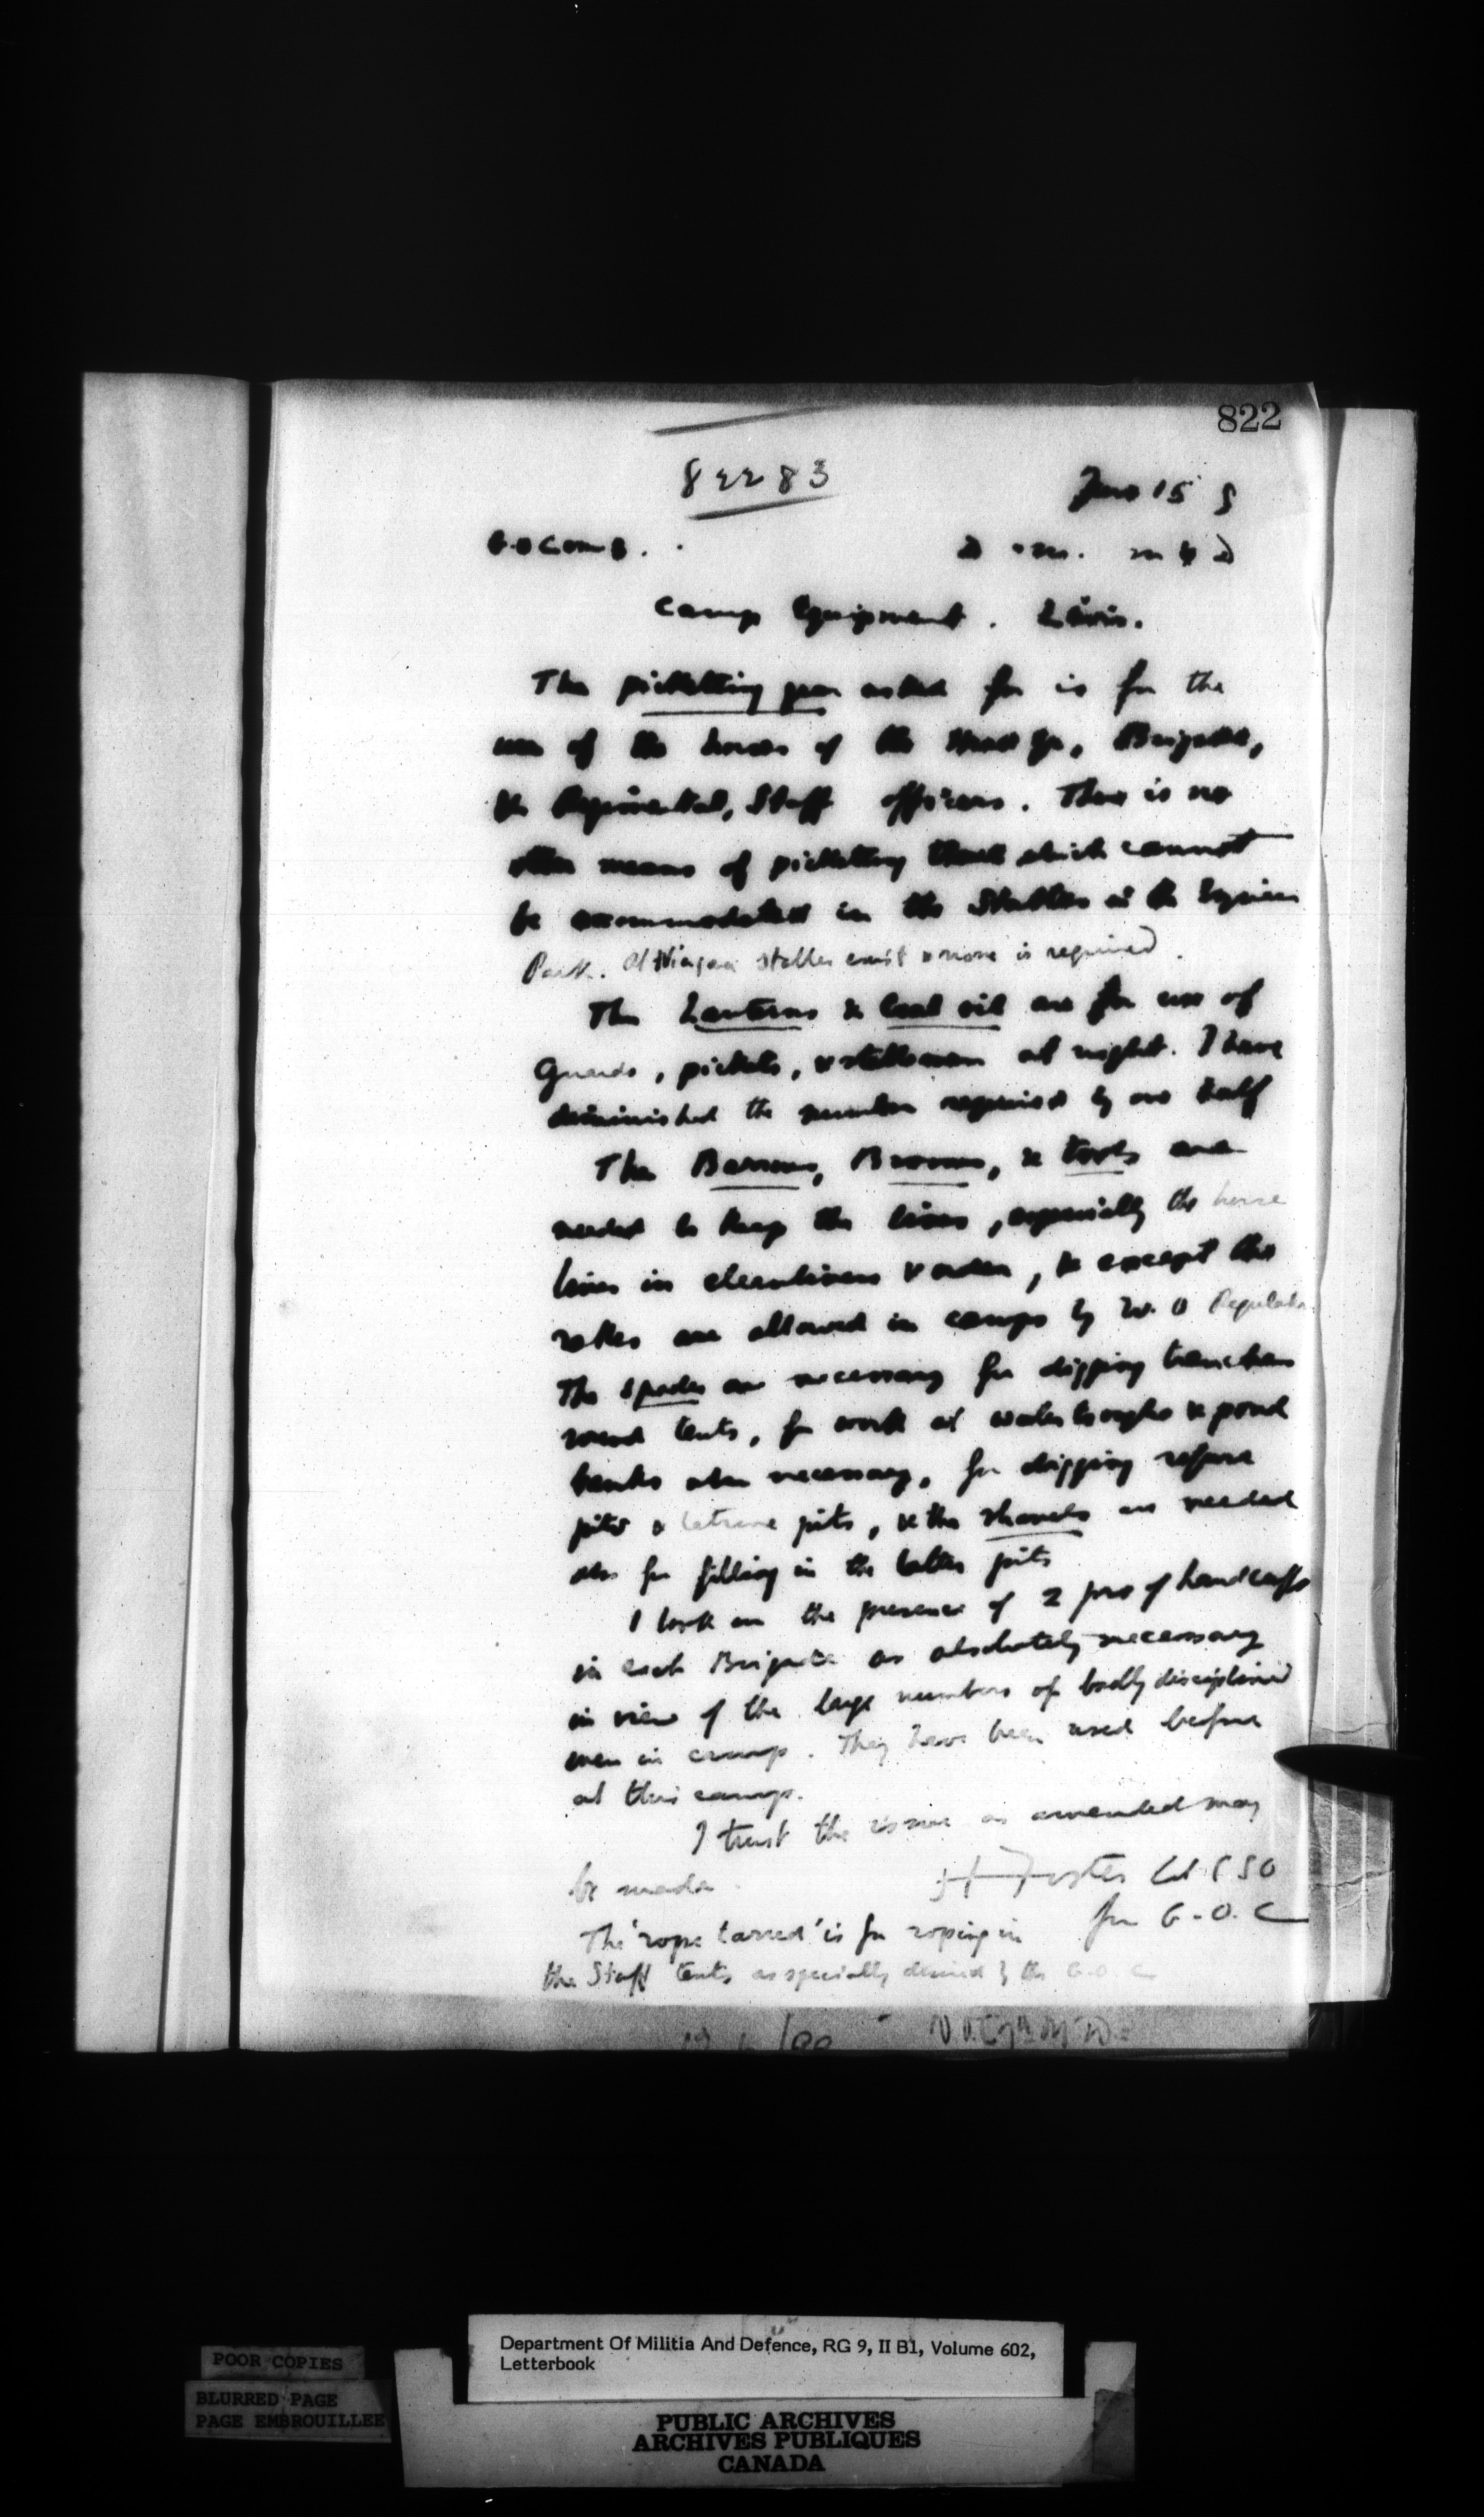 822
82283
June 15 9
G.O.Comd.
D of M. M & D
Camp Equipment. Lévis.
The picketting gear asked for is for the
use of the horses of the Head Qr., Brigade,
& Regimental, Staff officers. There is no
other means of picketting those which cannot
be accommodated in the Stables at the Engineer
Park. At Niagara stables exist & none is required.
The Lanterns & Coal oil are for use of
Guards, pickets, & stablemen at night. I have
diminished the number required by one half
The Barrows, Brooms, & tools are
needed to keep the lines, especially the horse
lines in cleanliness & order, & except the
rakes are allowed in camps by W. O Regulatn.
The spades are necessary for digging trenches
round tents, for work at water troughs & pond
banks when necessary, for digging refuse
pits & latrine pits, & the shovels are needed
also for filling in the latter pits
I look on the presence of 2 prs of handcuffs
in each Brigade as absolutely necessary
in view of the large numbers of badly disciplined
men in camp. They have been used before
at this camp.
I trust the issue as amended may
be made.
H Foster Col CSO
for G.O.C
The 'rope tarred' is for roping in
the Staff tents as specially desired by the G.O.C
POOR COPIES
BLURRED PAGE
PAGE EMBROUILLEE
Department Of Militia And Defence, RG 9, II B1, Volume 602,
Letterbook
PUBLIC ARCHIVES
ARCHIVES PUBLIQUES
CANADA